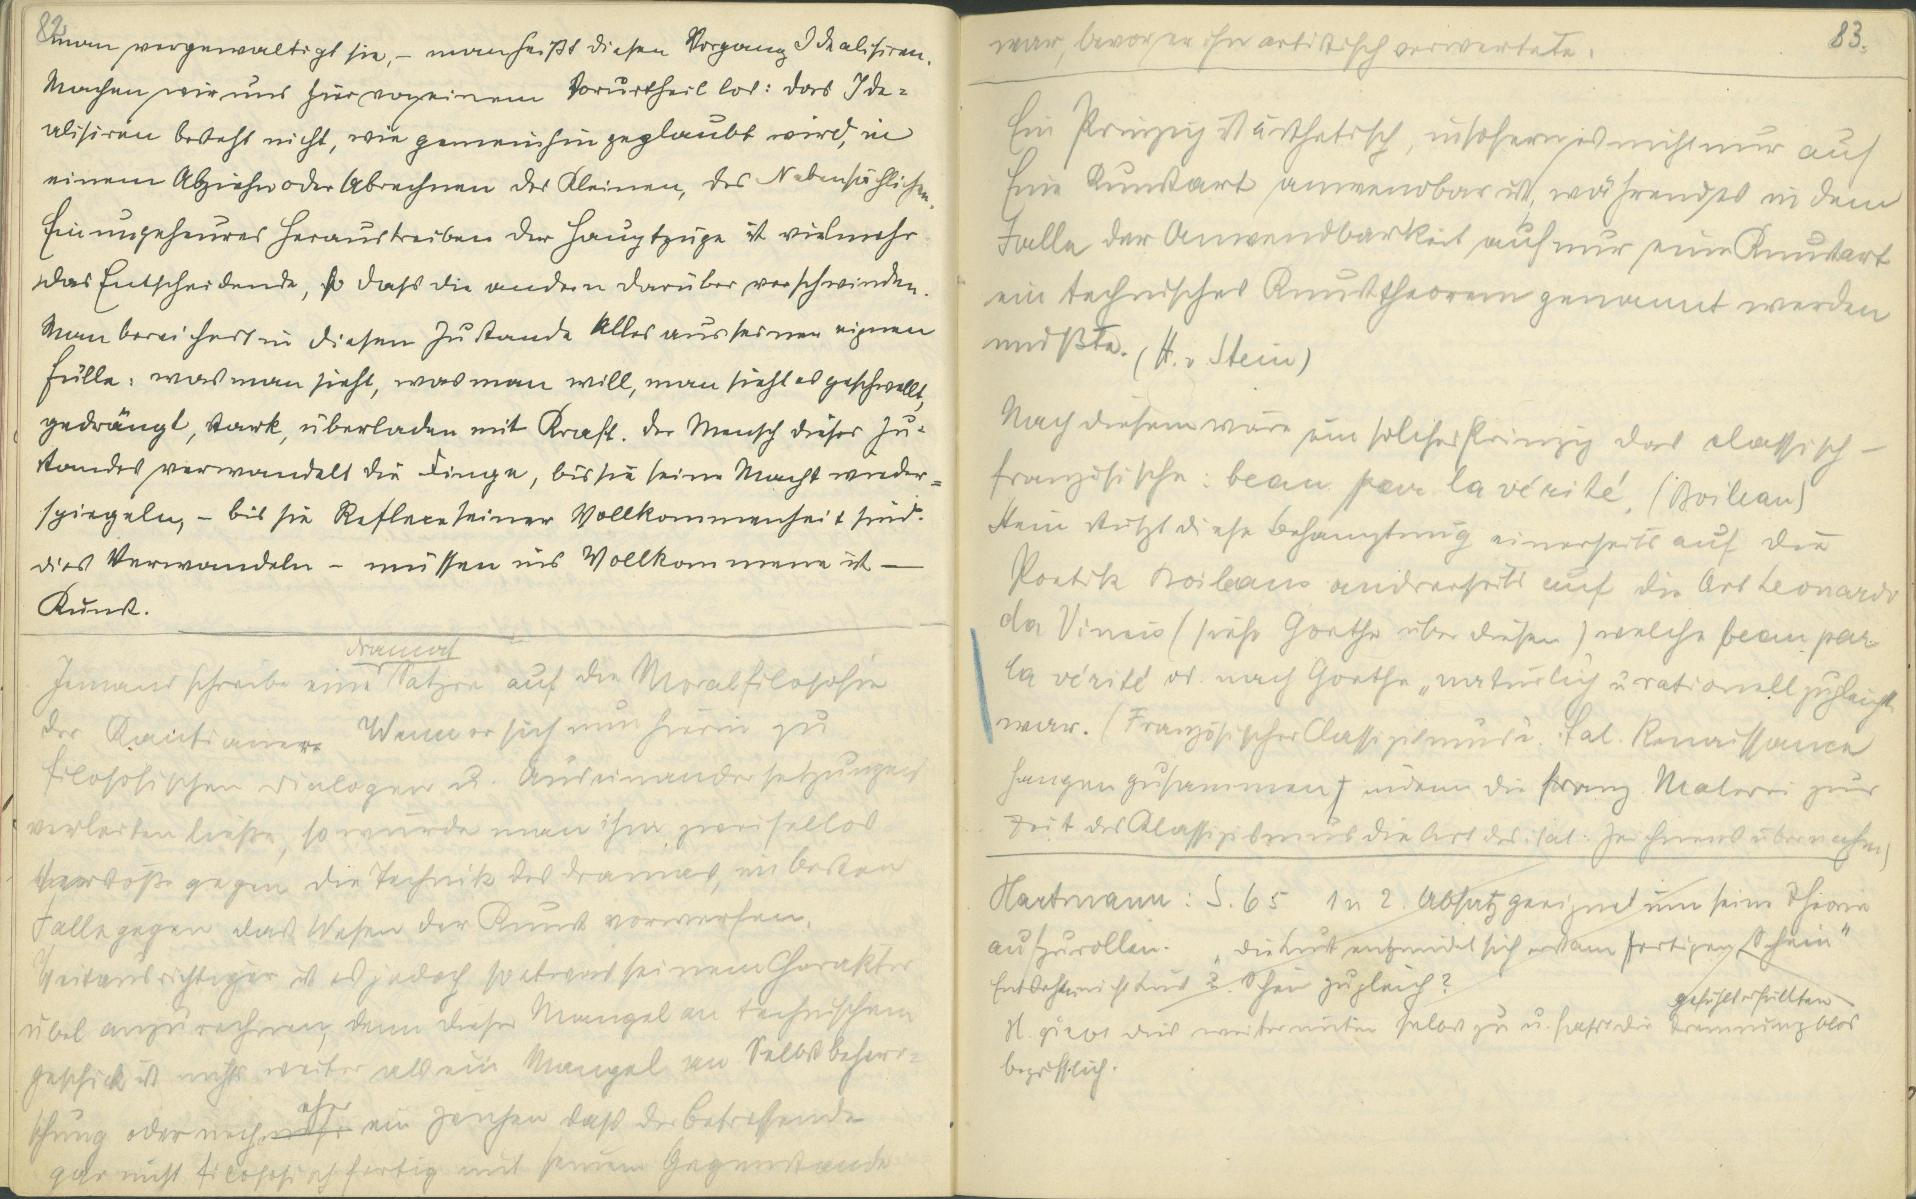 82.
man vergewaltigt sie, – man heißt diesen Vorgang Idealisiren.
Machen wir uns hier von einem Vorurtheil los: das Ide=
alisiren besteht nicht, wie gemeinhin geglaubt wird, in
einem Abziehn oder Abrechnen des Kleinen, des Nebensächlichen.
Ein ungeheures Heraustreiben der Hauptzüge ist vielmehr
das Entscheidende, so daß die andern darüber verschwinden.
Man bereichert in diesem Zustande Alles aus seiner eignen
Fülle: was man sieht, was man will, man sieht es geschwellt,
gedrängt, stark, überladen mit Kraft. Der Mensch dieses Zu-
standes verwandelt die Dinge, bis sie seine Macht wieder=
spiegeln, – bis sie Reflexe seiner Vollkommenheit sind.
dies Verwandeln – müssen ins Vollkommene ist –
Kunst.
dramat
Jemand schreibe eine Satyre auf die Moralfilosofie
der Kantianer. Wenn er sich nun hierin zu
filosofischen Dialogen u. Auseinandersetzungen
verleiten ließe, so würde man ihm zweifellos
Verstöße gegen die Technik des Dramas, im besten
Falle gegen das Wesen der Kunst vorwerfen.
Weitaus richtiger ist es jedoch so etwas seinem Charakter
übel anzurechnen, denn dieser Mangel an technischem
Geschick ist nichts weiter als ein Mangel an Selbstbeherr=
schung oder noch eher ein Zeichen daß der Betreffende
gar nicht filosofisch fertig mit seinem Gegenstande
83.
war, bevor er ihn artistisch verwertete.
Ein Prinzip ist ästhetisch, insofern es nicht nur auf
Eine Kunstart anwendbar ist, während es in dem
Falle der Anwendbarkeit auf nur eine Kunstart
ein technisches Kunsttheorem genannt werden
müßte. (H. v Stein)
Nach diesem wäre ein solches Prinzip das classisch –
französische: beau par la vérité. (Boileau)
Stein stützt diese Behauptung einerseits auf die
Poetik Boileaus andrerseits auf die Art Leonardo
da Vincis (siehe Goethe über diesen) welche beau par
la vérité od. nach Goethe „natürlich u rationell zugleich"
war. (Französischer Classizismus u. ital. Renaissance
hangen zusammen, indem die franz. Malerei zur
Zeit des Klassizismus die Art des ital. Zeichnens übernahm)
Hartmann: S. 65 1 u 2. Absatz geeignet um seine Theorie
aufzurollen. „die Lust entzündet sich erst am fertigen Schein"
Entstehen nicht Lust u. Schein zugleich?
gefühlserfüllten
H. giebt dies weiter unten selbst zu u. fasst die Trennung blos
begrifflich.